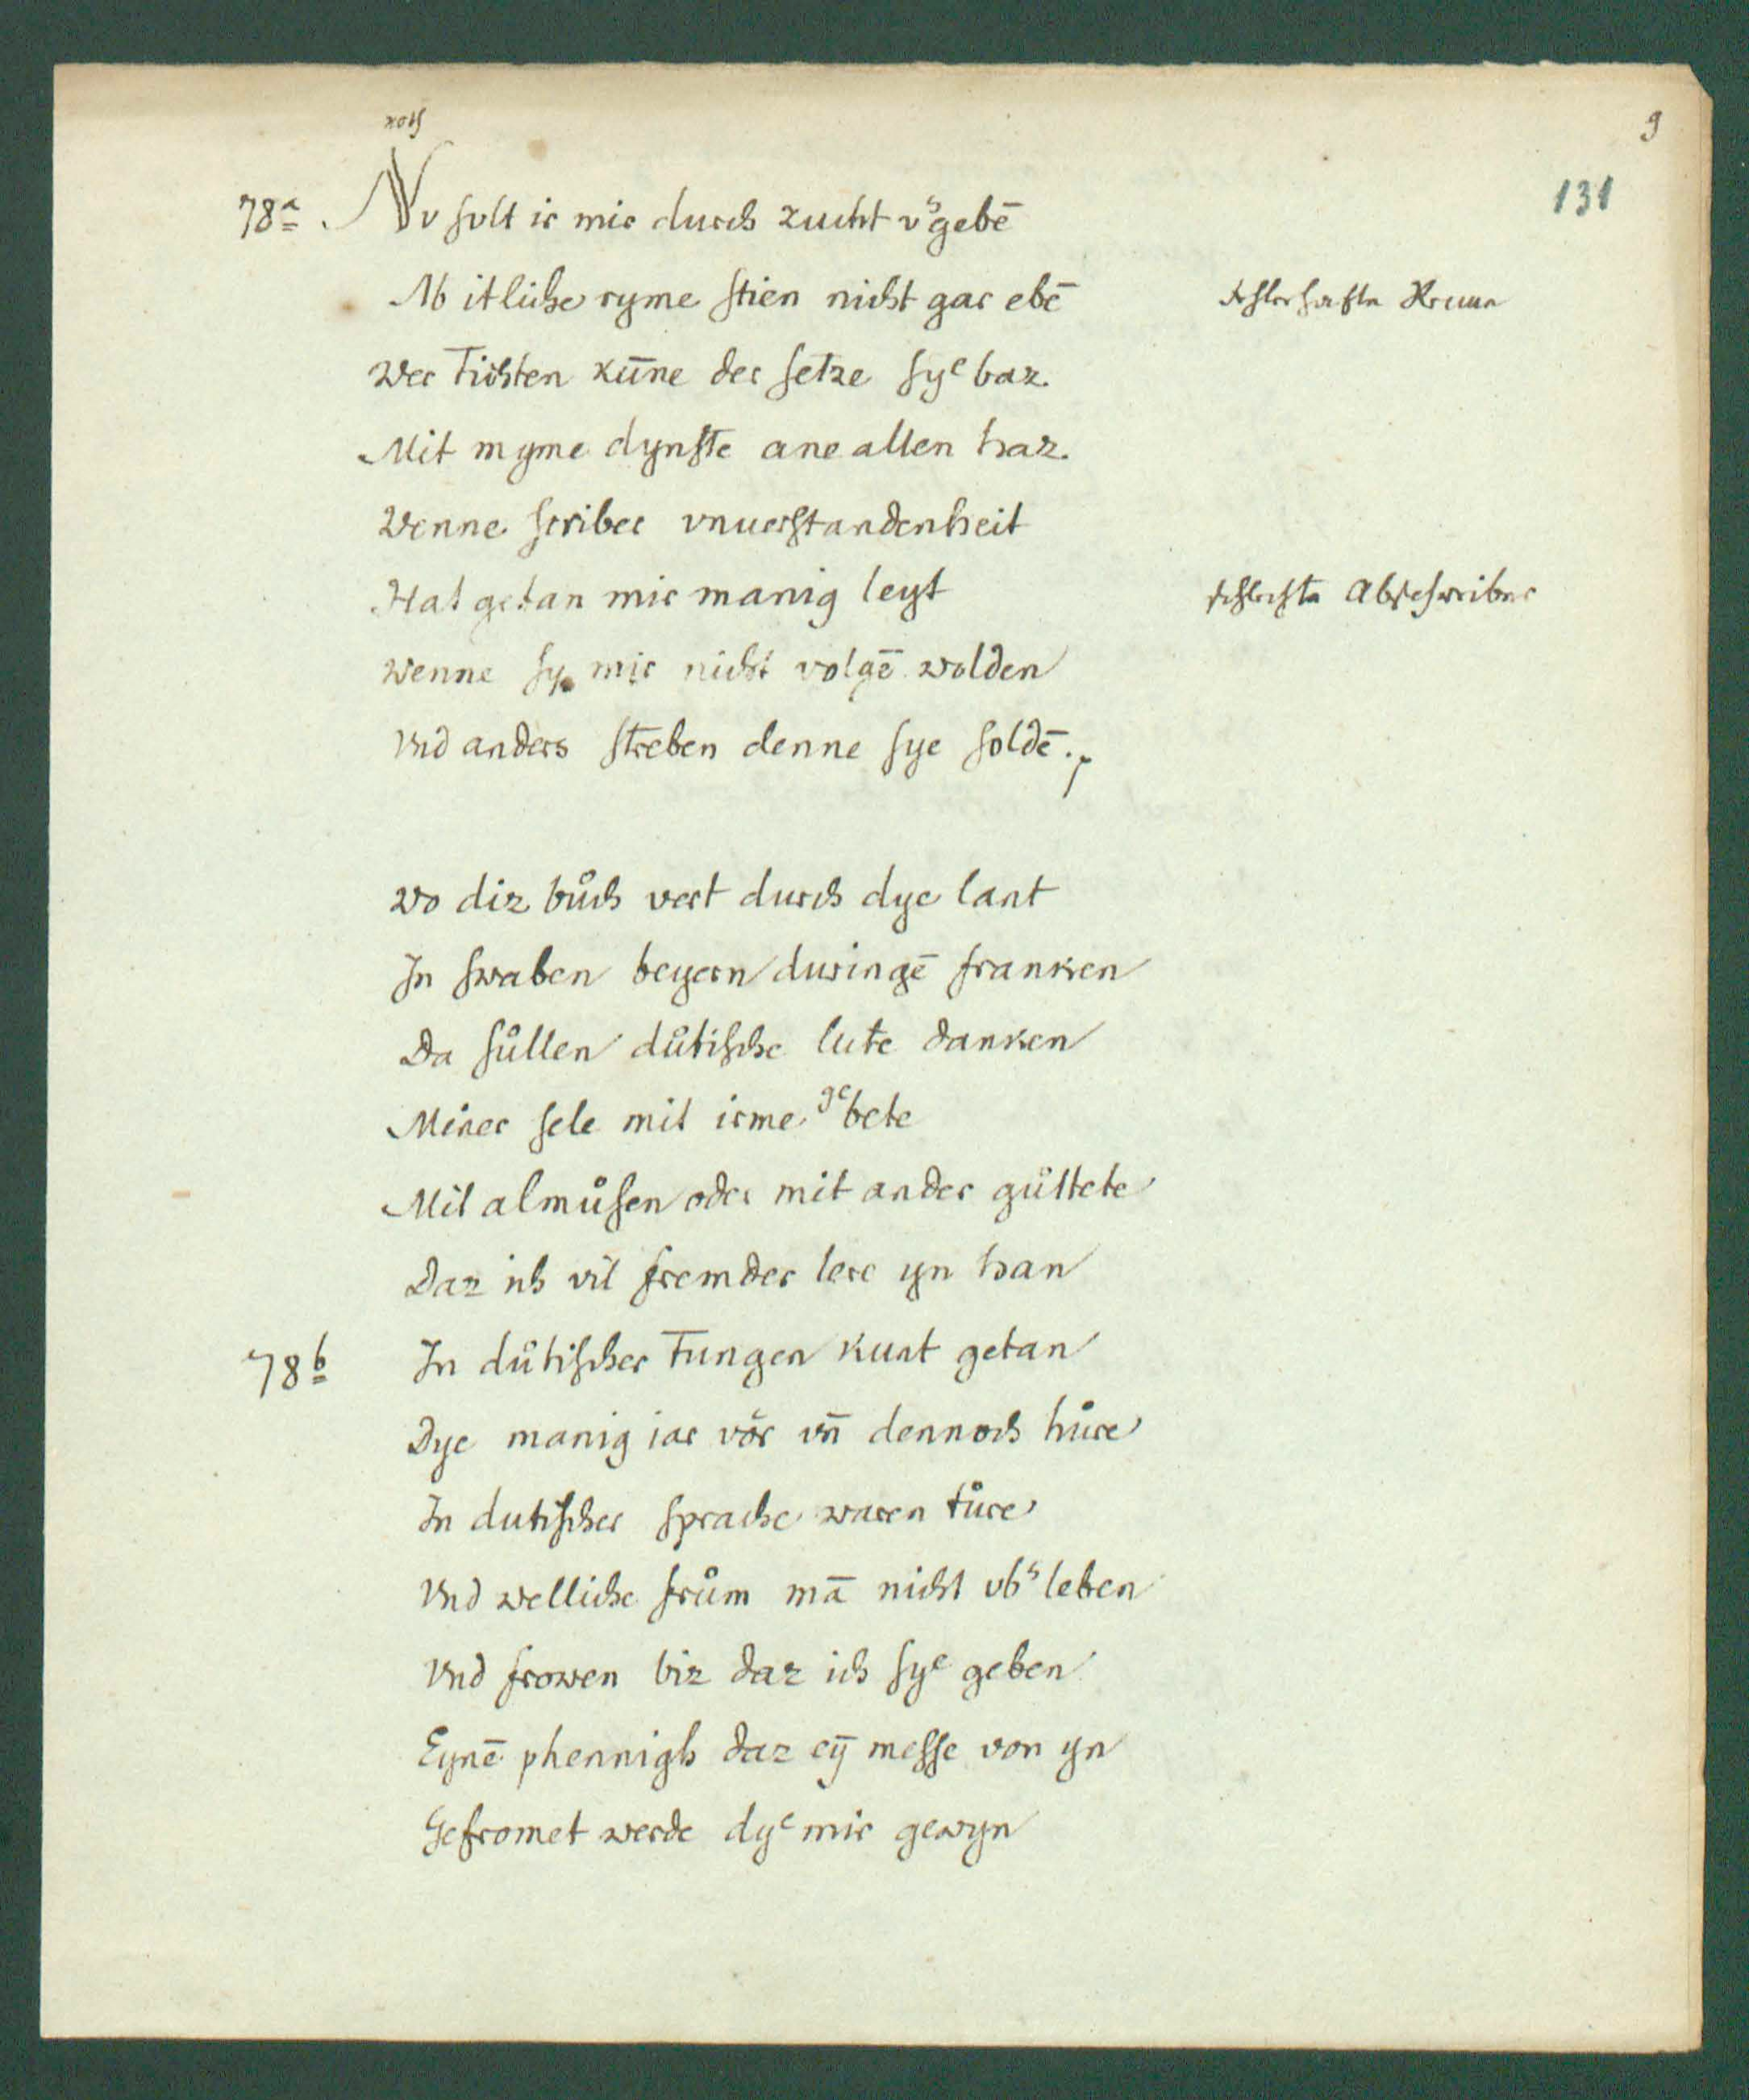 9
131
roth
78a. Nv solt ir mir durch zucht vsgebē
Ab itliche ryme stien nicht gar ebē
fehlerhafte Reime
wer Tichten kūne der setze sye baz.
Mit myme dynste ane allen haz.
Wenne scriber vnuerstandenheit
Hat getan mir manig leyt
schlechte Abschreiber
wenne sy mir nicht volgē wolden
Vnd anders streben denne sye soldē.
Wo diz bůch vert durch dye lant
In swaben beyern duringē franken
Da sůllen důtische lute danken
Miner sele mit irme gebete
Mit almůsen oder mit ander gůttete
Daz ich vil fremder lere yn han
78b In důtischer Tungen kunt getan
Dye manig iar vor vn̄ dennoch hůre
In dutischer sprache waren tůre
Vnd welliche frům mā nicht vbsleben
Vnd frowen biz daz ich sye geben
Eynē phennigh daz eȳ messe von yn
Gefromet werde dye mir gewyn